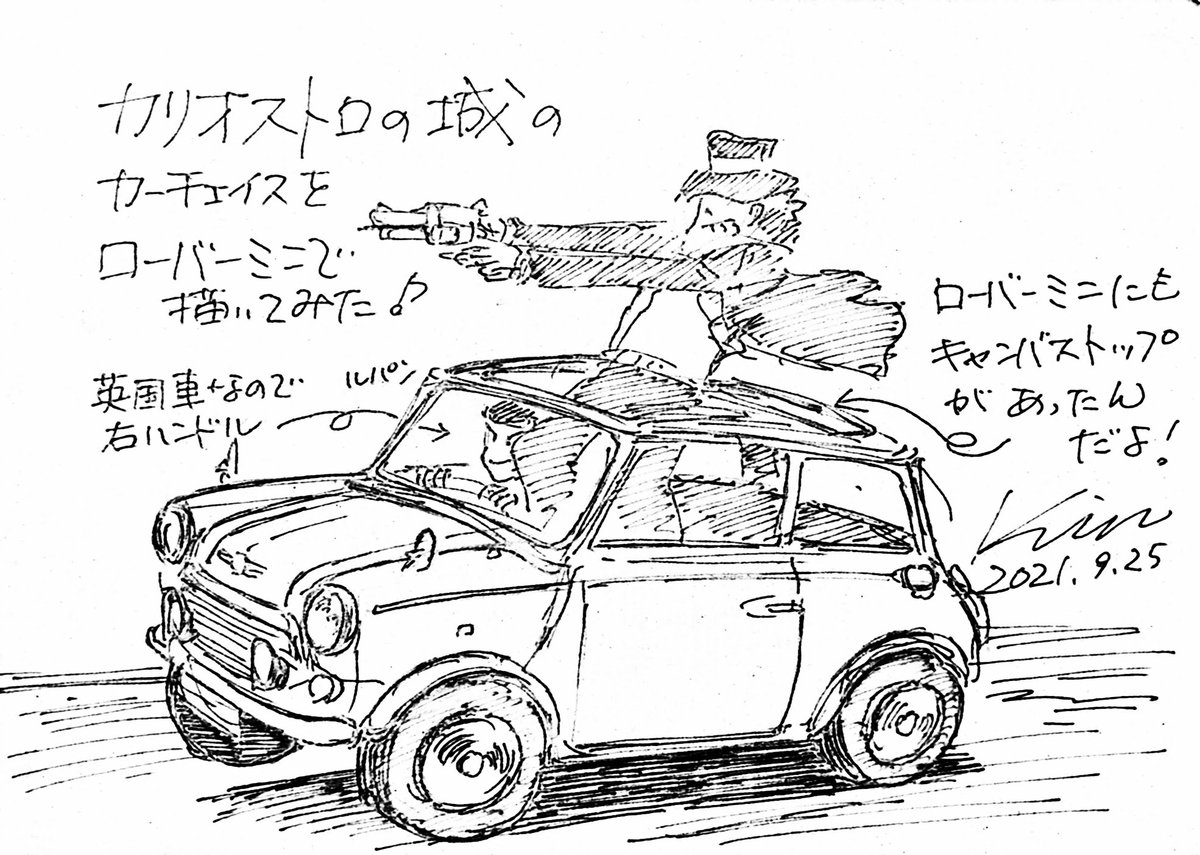 カリオストロの城の
カーチェイスを
ローバーミニで
描いてみた♪
英国車なので
右ハンドル
ルパン
ローバーミニにも
キャンバストップ
があったん
だよ!
Kin
2021.9.25